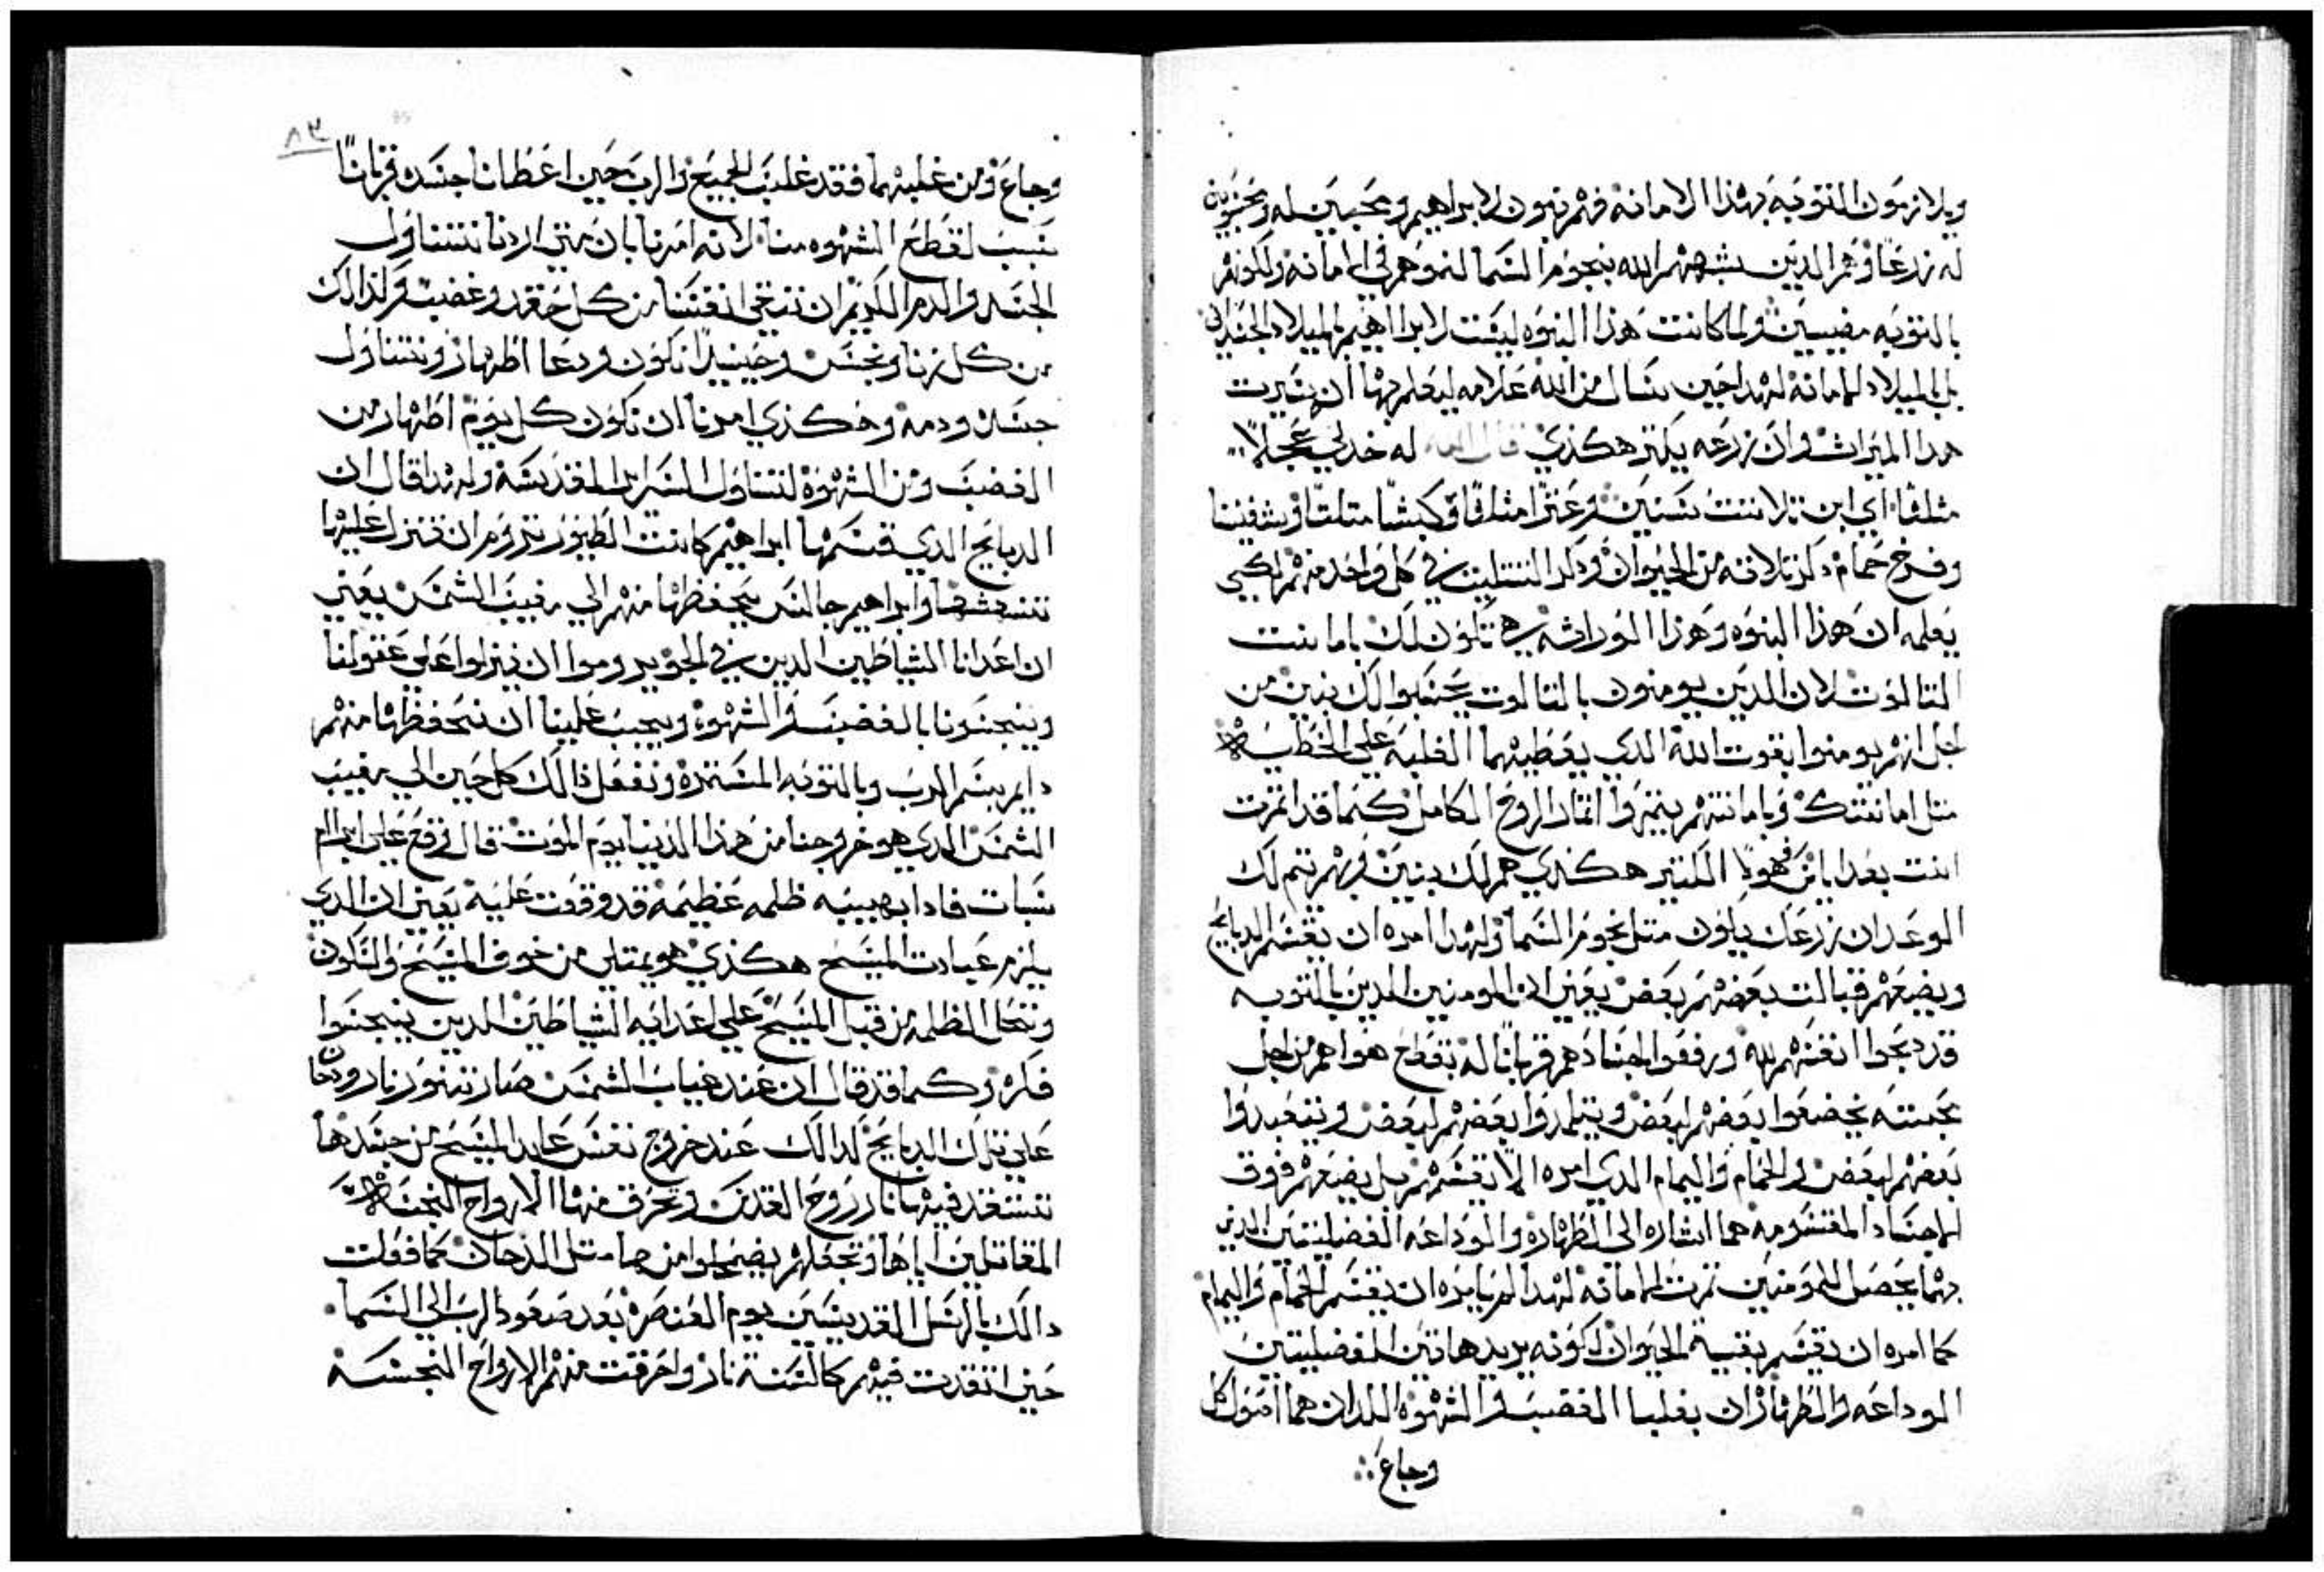 ويلازمون التوبة بهذا الامانه فهم بنون لابراهيم ومحبين له ومحسوبين
له زرعًا وهم الدين يشبههم الله بنجوم السما لنموهم في الامانه ولكونهم
بالتوبه مضيين ولما كانت هذا البنوه ليست لابراهيم بالميلاد الجسداني
بل بالميلاد الامانه لهدا حين سال من الله علامه ليعلم بها ان يرت
هدا الميرات وان زرعه يكتر هكذي قال الله له خد لي عجلًا
متلتًا اي ابن تلاتت سنين وعنزًا متلتًا وكبشًا متلتًا وشفنينا
وفرخ حمام دكر تلاته من الحيوان ودكر التتليت في كل واحد منهم لكيي
يعلمه ان هذا البنوه وهذا الوراثه هي تكون لك بامانت
التالوت لان الدين يومنون بالتالوت يحسبوا لك بنين من
اجل انهم يومنوا بقوت الله الدي يعطيهما الغلبه علي الخطيه
متل امانتك وبامانتهم يتمروا اتمار الروح الكامل كما قد اتمرت
انت بعدا بانفهويا الكتير هكذي هم لك بنين وبهم تتم لك
الوعد ان زرعك يكون متل نجوم السما ولهدا امره ان يقسم الدبايح
ويضعهم قبالت بعضهم بعض يعني ان المومنين الدين بالتوبه
قد دبحوا انفسهم لله ورفعوا اجسادهم قربانًا له بقطع هواهم من اجل
محبته يخضعوا بعضهم لبعض ويتلمدوا بعضهم لبعض ويتعبدوا
بعضهم لبعض والحمام واليمام الدي امره الا يقسمهم بل يضعهم فوق
الاجساد المقسومه هما اشاره الي الطهاره والوداعه الفضيلتين الدين
بهما يحصل للمومنين تمرت الامانه لهدا لم يامره ان يقسم الحمام واليمام
كما امره ان يقسم بقية الحيوان لكونه يريد هاتين الفضيلتين
الوداعه والطهاره ان يغلبا الغضب والشهوه اللدان هما اصول كل
وجاع
٨٣
وجاع ومن غلبهما فقد غلب الجميع والرب حين اعطانا جسده قربانًا
بسبب لقطع الشهوه منا لانه امرنا بان متي اردنا نتناول
الجسد والدم الكريم ان ننقي انفسنا من كل حقد وغضب وكذالك
من كل زنا ونجس وحينيدًا نكون ودعا اطهار ونتناول
جسده ودمه وهكذي امرنا ان نكون كل يوم اطهار من
الغضب ومن الشهوة لنتناول السراير المقدسه ولهدا قال ان
الدبايح الدي قسمها ابراهيم كانت الطيور تروم ان تنزل عليها
وابراهيم جالس يحفظها منهم الي مغيب الشمس يعني
ان اعدانا الشياطين الدين في الجو يروموا ان ينزلوا علي عقولنا
وينجسونا بالغضب والشهوة ويجب علينا ان نحفظها منهم
دايم بسم الرب وبالتوبه المستمره ونفعل ذالك كل حين الي مغيب
الشمس الدي هو خروجنا من هذا الدنيا يوم الموت قال وقع علي ابرام
سبات فادا بهيبه ظلمه عظيمه قد وقعت عليه يعني ان الدي
يلزم عبادت المسيح هكذي هو يمتلي من خوف المسيح والسكون
وتحل الظلمه من قبل المسيح علي اعدايه الشياطين الدين ينجسوا
فكره وكما قد قال ان عند غياب الشمس صار تنور نار ودخان
علي تلك الدبايح كدالك عند خروج نفس عابد المسيح من جسدها
تستقد فيها نار روح القدس وتحرق منها الارواح النجسه
المقاتلين اياها وتجعلهم يضمحلوا من متل الدخان كما فعلت
دالك بالرسل القديسين يوم العنصره بعد صعود الرب الي السما
حين اتقدت فيهم كالسنة نار واحرقت منهم الارواح النجسه